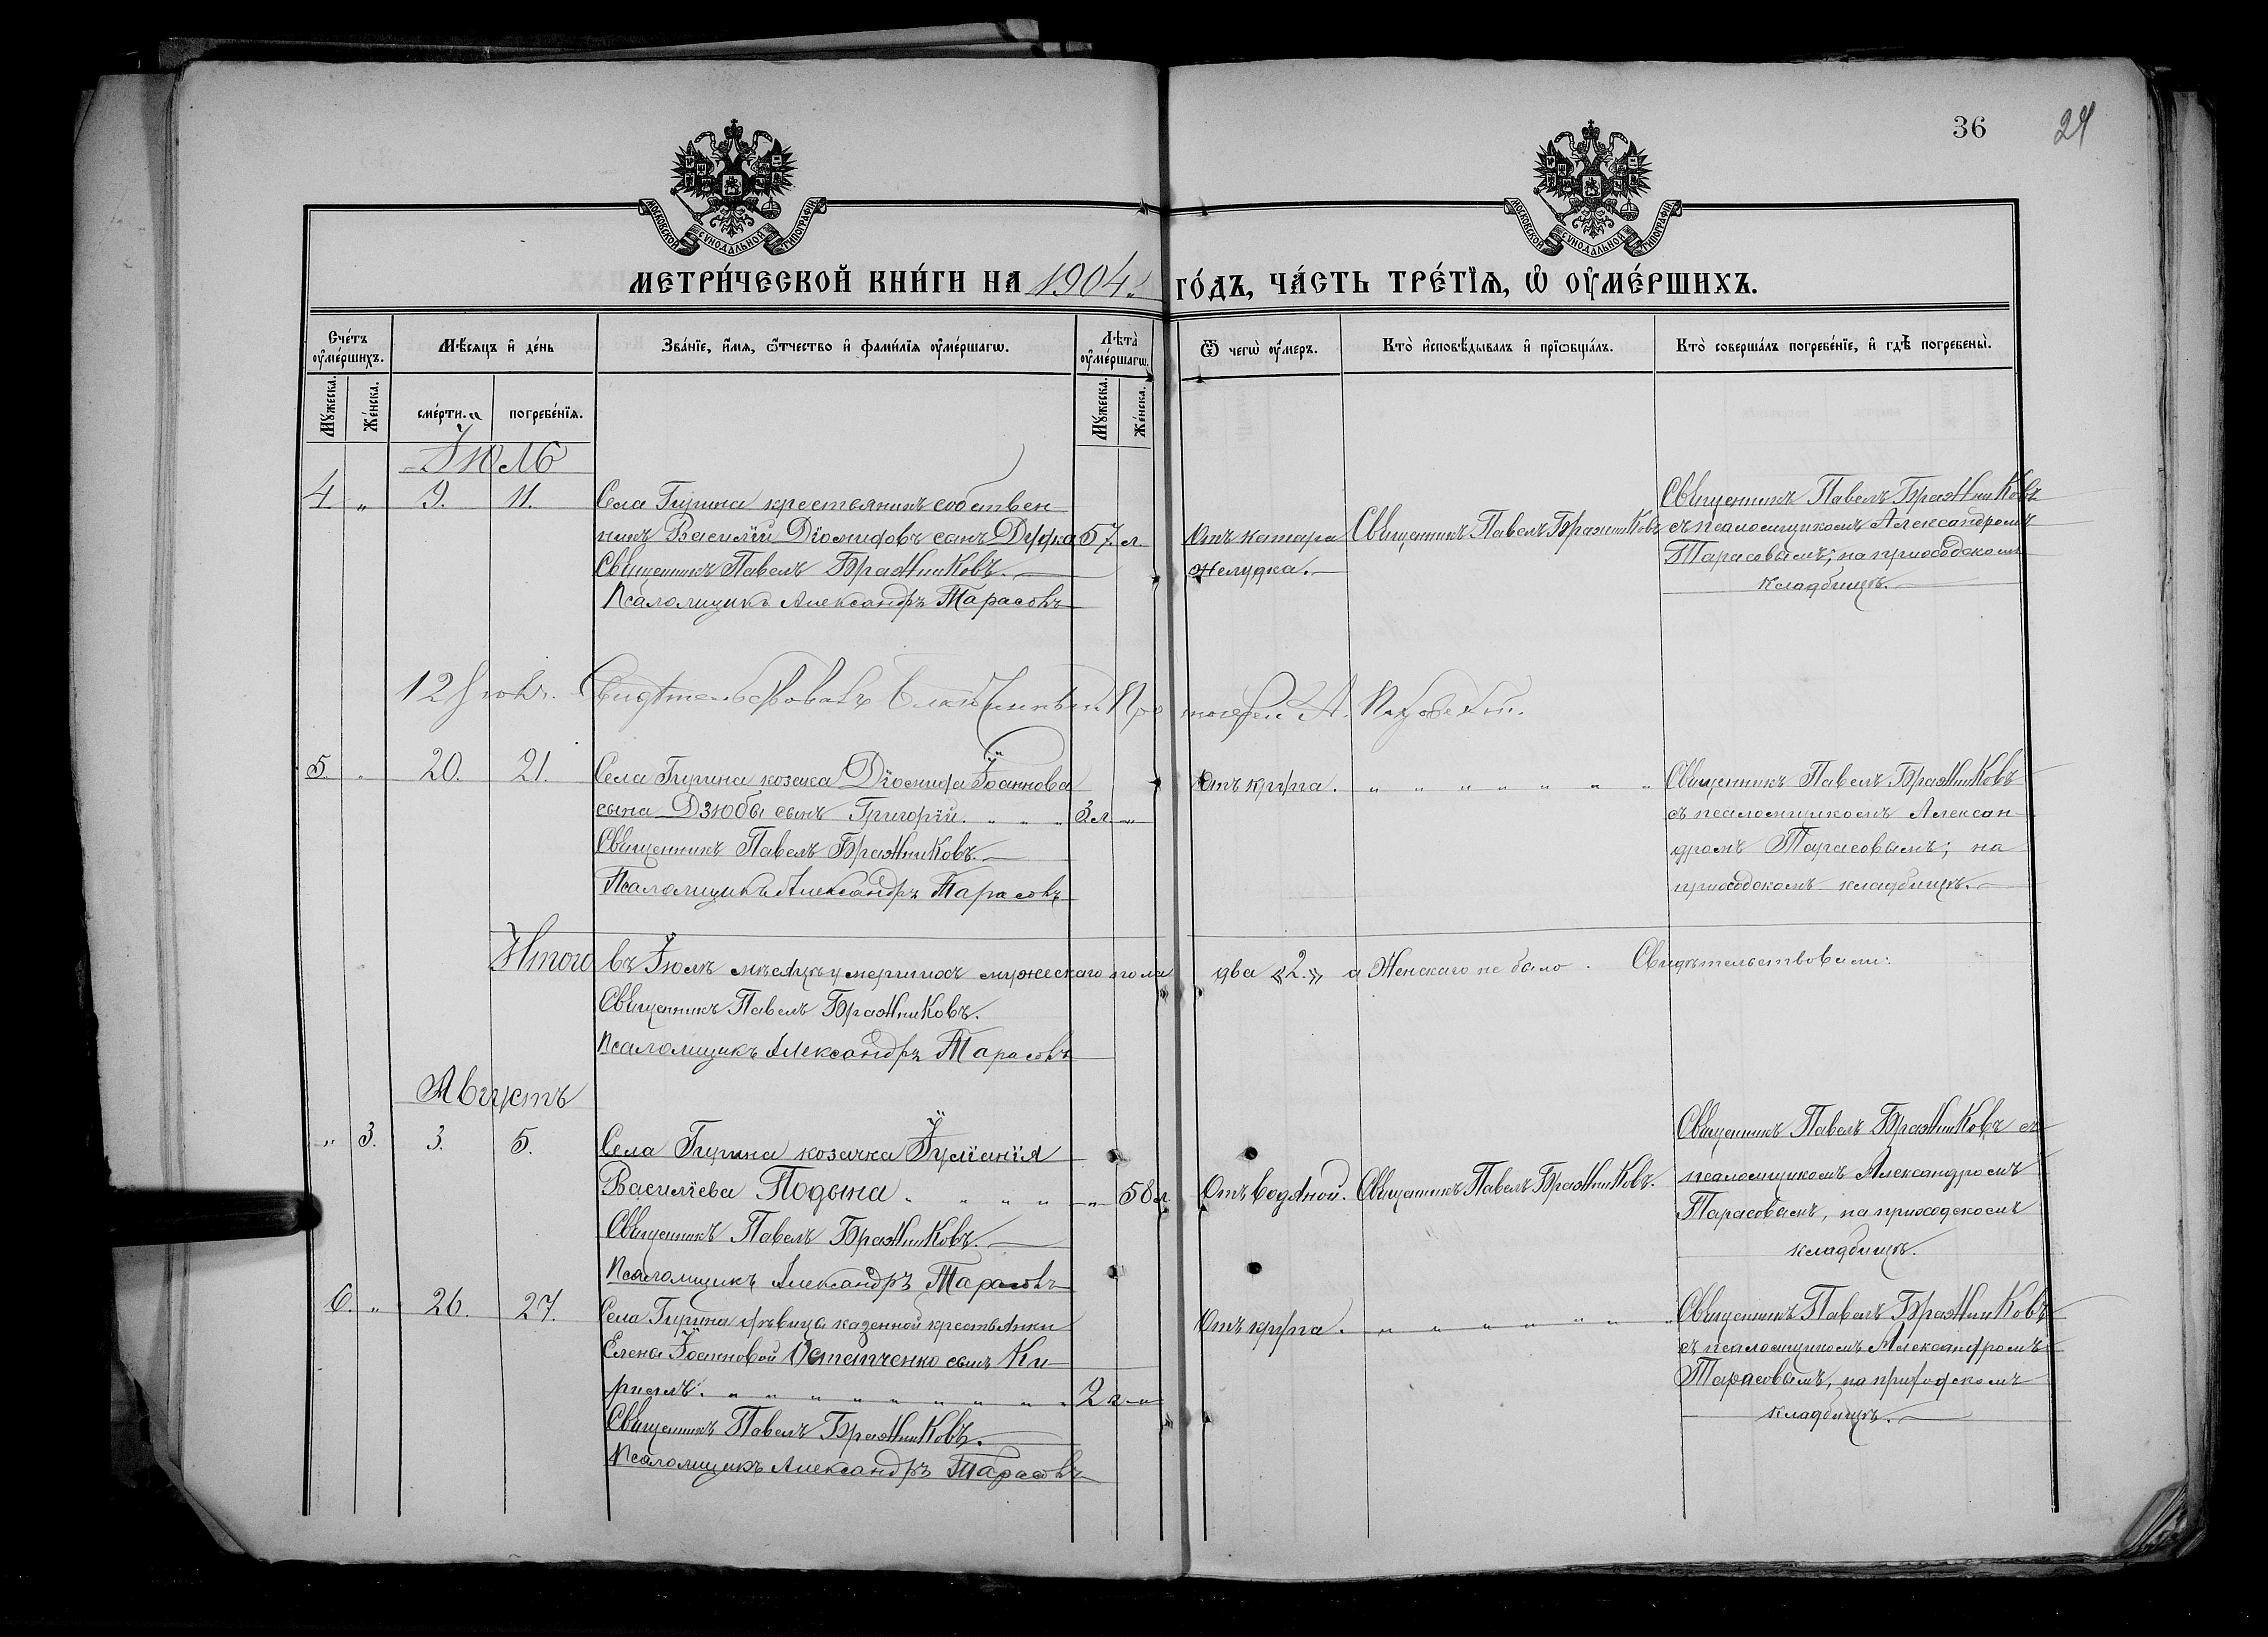 36
24
МОСКОВСКОЙ СѴНОДАЛЬНОЙ ТИПОГРАФІИ
МОСКОВСКОЙ СѴНОДАЛЬНОЙ ТИПОГРАФІИ
МЕТРИ́ЧЕСКОЙ КНИ́ГИ НА 1904. ГО́ДЪ, ЧА́СТЬ ТРЕ́ТІѦ, Ѡ҆ ОУ҆МЕ́РШИХЪ.
Сче́тъ оу҆ме́ршихъ.
Мѣ́сяцъ и҆ де́нь
Зва́нїе, и҆́мѧ, ѿ́тчество и҆ фами́лїѧ оу҆ме́ршагѡ.
Лѣ́та оу҆ме́ршагѡ.
Ѿ чегѡ̀ оу҆́меръ.
Кто̀ и҆сповѣ́дывалъ и҆ прїѡбща́лъ.
Кто̀ соверша́лъ погребе́нїе, и҆ гдѣ̀ погребены̀.
Мꙋ́жеска.
Же́нска.
сме́рти.
погребе́нїѧ.
Мꙋ́жеска.
Же́нска.
Іюль
4. „ 9. 11. Села Гирина крестьянинъ собствен-
никъ Василій Діомидовъ сынъ Дудка 57 л.
Священникъ Павелъ Бражниковъ.
Псаломщикъ Александръ Тарасовъ
Отъ катара
желудка.
Священникъ Павелъ Бражниковъ
Священникъ Павелъ Бражниковъ
съ псаломщикомъ Александромъ
Тарасовымъ; на приходскомъ
кладбищѣ.
12 Свидѣтельствовалъ Благочинный Протоіерей А.
5. „ 20. 21. Села Гирина козака Діомида Іоаннова
сына Дзюбы сынъ Григорій. „ „ „ 3 л. „
Священникъ Павелъ Бражниковъ.
Псаломщикъ Александръ Тарасовъ
Отъ крупа. „ „ „ „ „ „ „
Священникъ Павелъ Бражниковъ
съ псаломщикомъ Алексан-
дромъ Тарасовымъ; на
приходскомъ кладбищѣ.
Итого въ Іюлѣ мѣсяцѣ умершихъ мужескаго пола два «2.» а Женскаго не было. Свидѣтельствовали:
Священникъ Павелъ Бражниковъ.
Псаломщикъ Александръ Тарасовъ
Августъ
„ 3. 3. 5. Села Гирина козачка Іуліанія
Василіева Подына „ „ „ „ „ 58 л.
Священникъ Павелъ Бражниковъ.
Псаломщикъ Александръ Тарасовъ
Отъ водяной.
Священникъ Павелъ Бражниковъ.
Священникъ Павелъ Бражниковъ съ
псаломщикомъ Александромъ
Тарасовымъ, на приходскомъ
кладбищѣ.
6. „ 26. 27. Села Гирина дѣвицы казенной крестьянки
Елены Іоанновой сынъ Ки-
риллъ. „ „ „ „ „ „ „ „ 2 л. „
Священникъ Павелъ Бражниковъ.
Псаломщикъ Александръ Тарасовъ
Отъ крупа. „ „ „ „ „ „ „
Священникъ Павелъ Бражниковъ
съ псаломщикомъ Александромъ
Тарасовымъ, на приходскомъ
кладбищѣ.